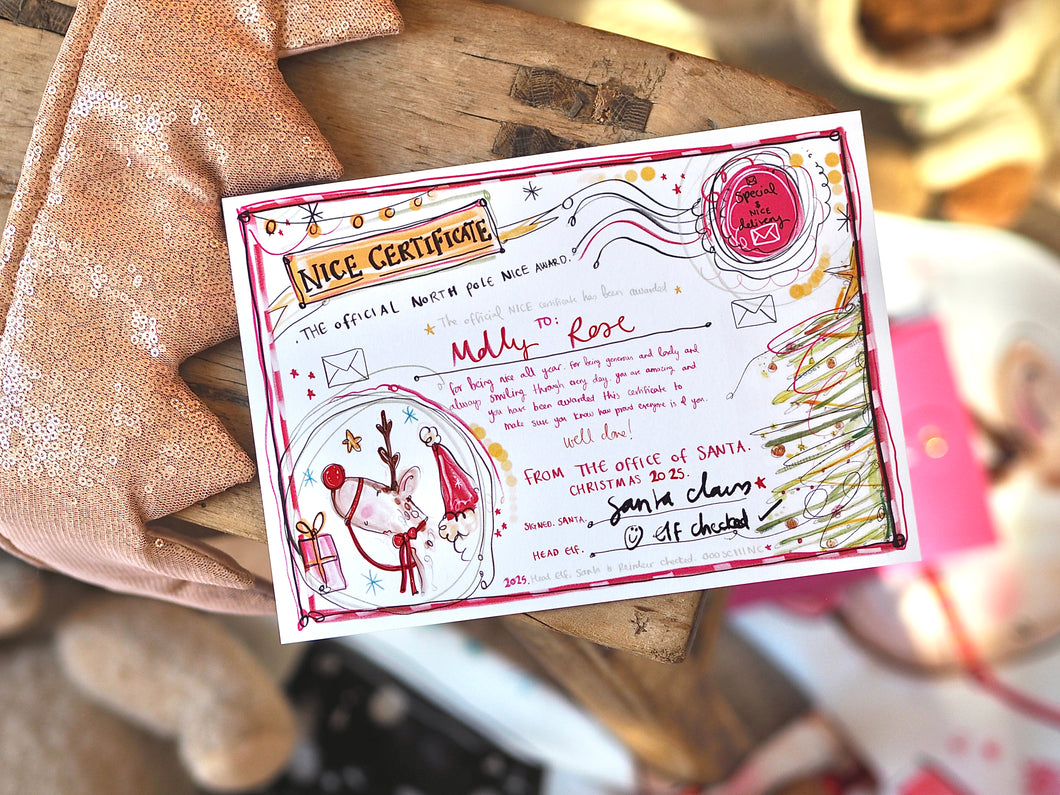 Special
& NICE
delivery
NICE CERTIFICATE
. THE OFFICIAL NORTH POLE NICE AWARD.
The official NICE certificate has been awarded
TO:
Molly Rose
for being nice all year. For being generous and lovely and
always smiling through every day. you are amazing and
you have been awarded this certificate to
make sure you know how proud everyone is of you.
well done!
FROM THE OFFICE OF SANTA.
CHRISTMAS 2025.
SIGNED. SANTA. Santa Claus
HEAD ELF. Elf checked
2025. Head Elf, Santa & Reindeer checked.